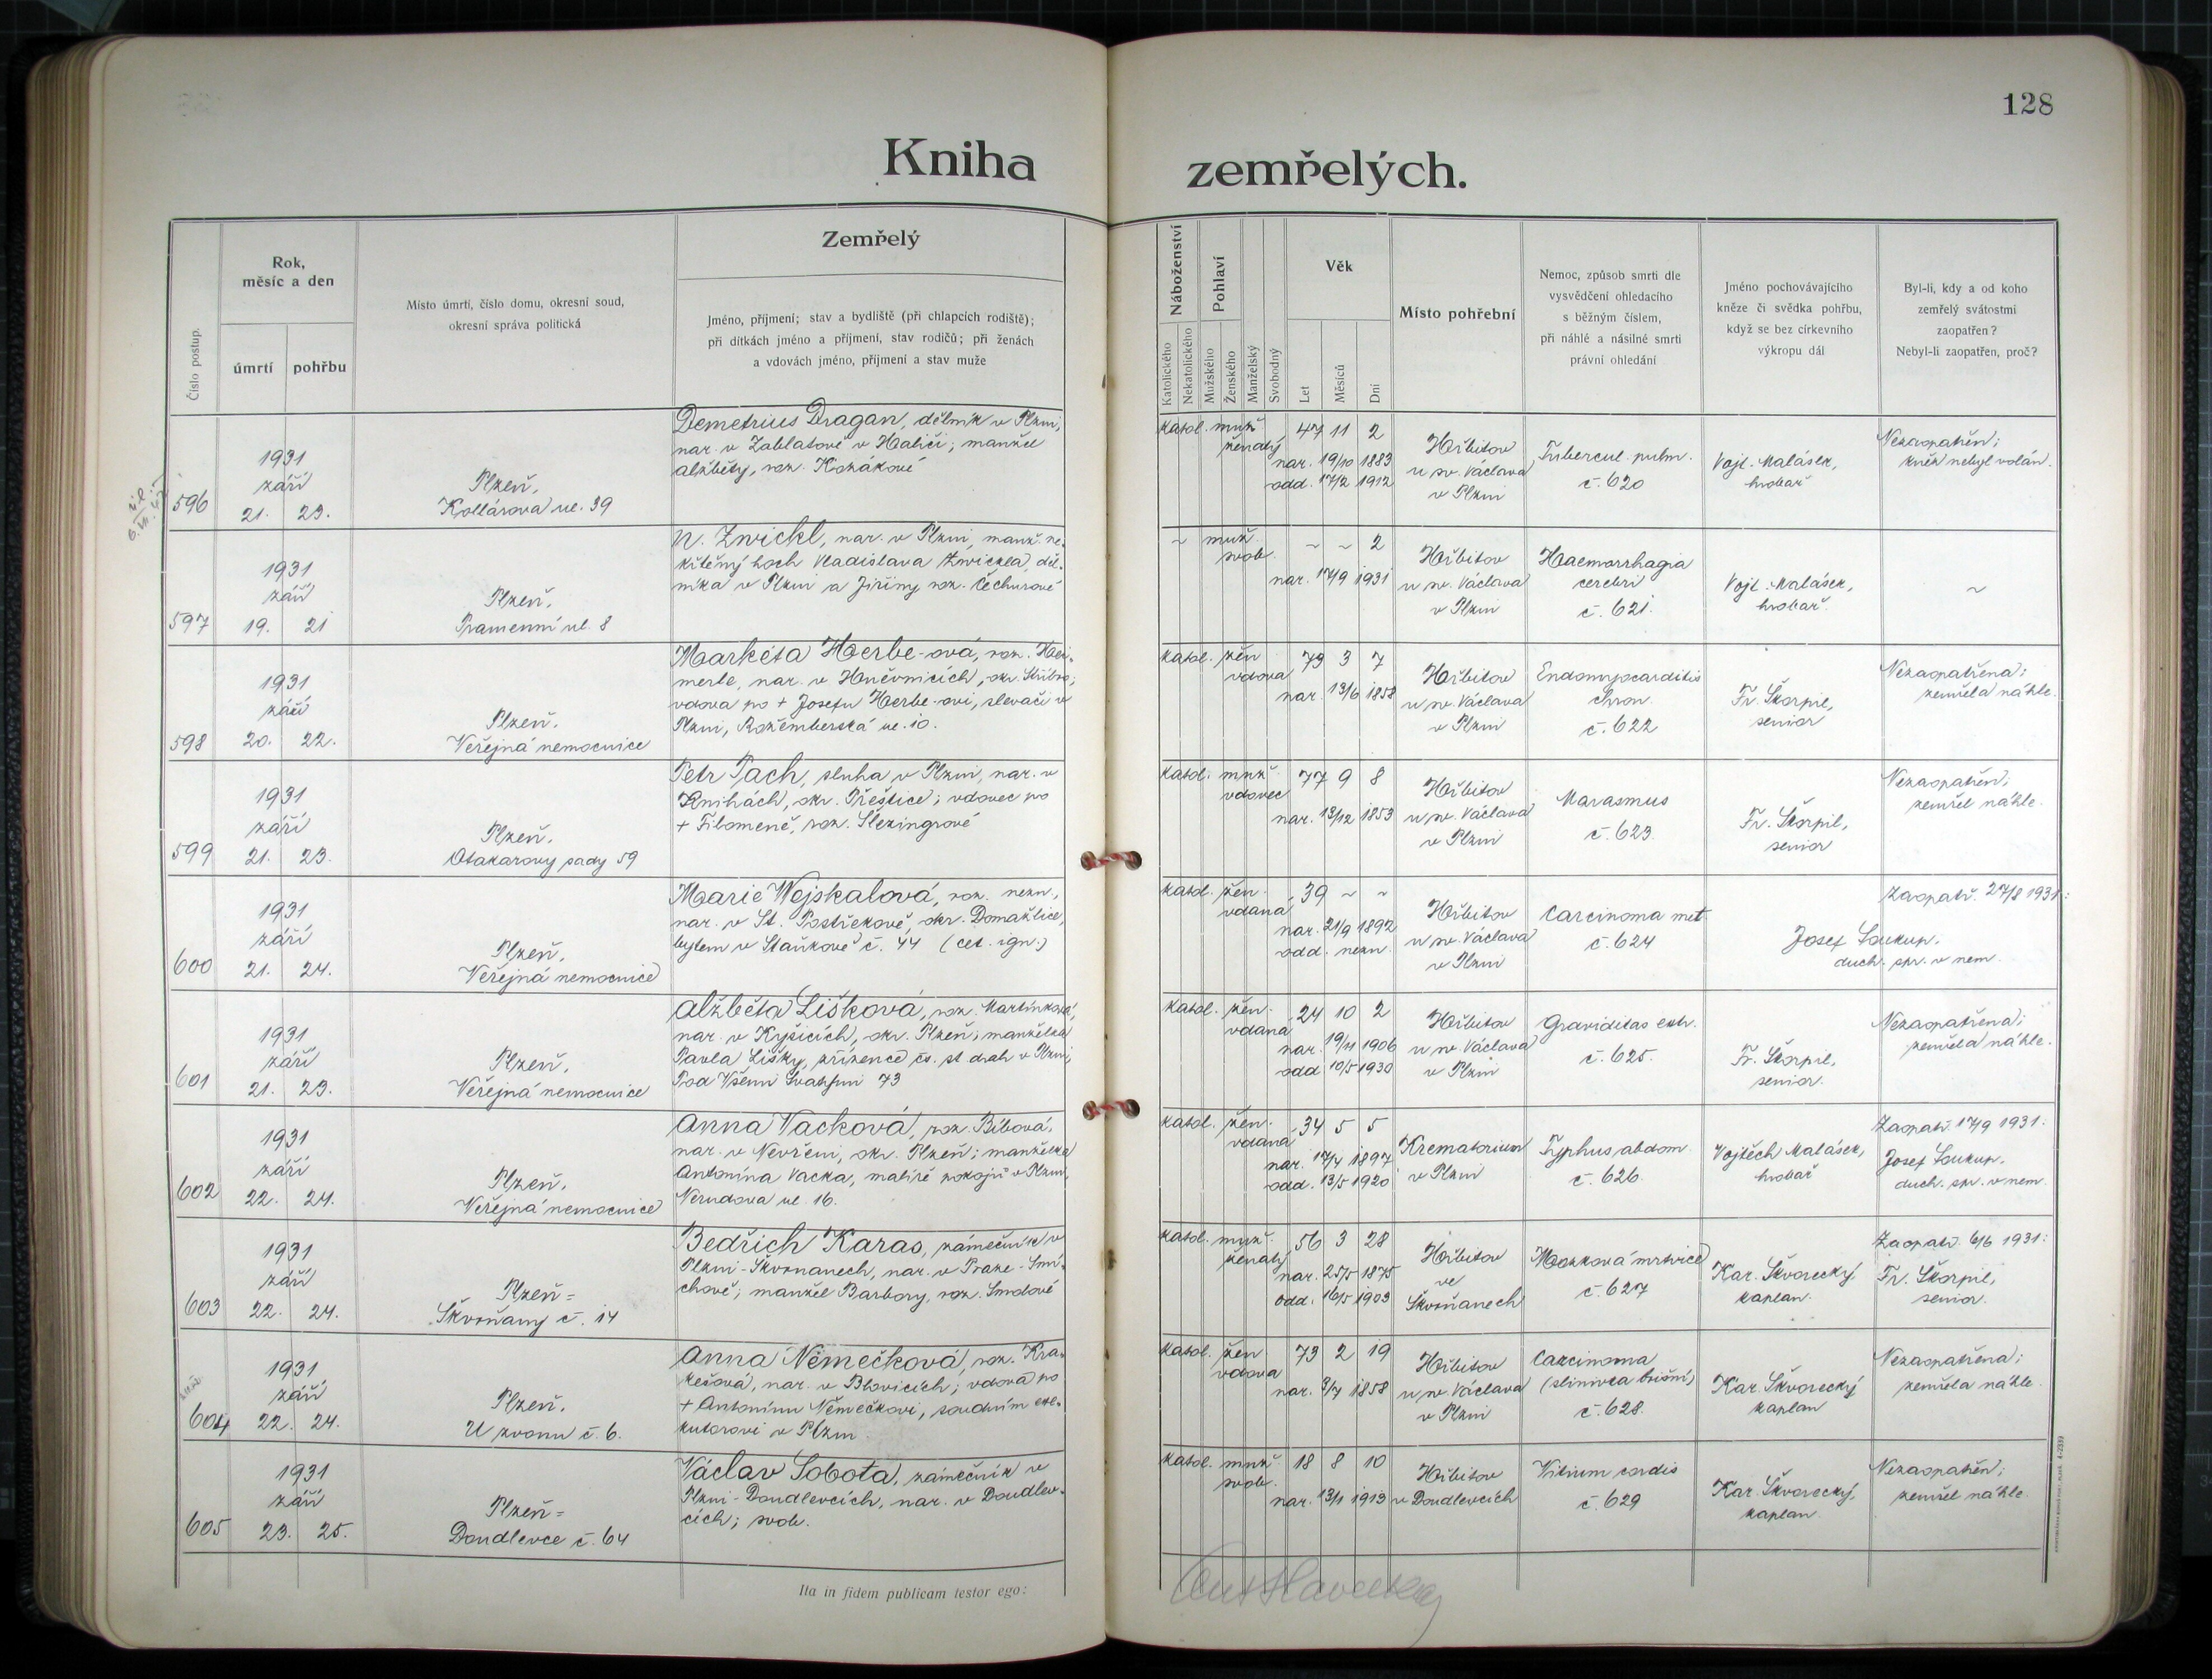 128
Kniha zemřelých.
Číslo postup.
Rok,
měsíc a den
úmrtí
pohřbu
Místo úmrtí, číslo domu, okresní soud,
okresní správa politická
Zemřelý
Jméno, příjmení; stav a bydliště (při chlapcích rodiště);
při dítkách jméno a příjmení, stav rodičů; při ženách
a vdovách jméno, příjmení a stav muže
Náboženství
Katolického
Nekatolického
Pohlaví
Mužského
Ženského
Manželský
Svobodný
Věk
Let
Měsíců
Dní
Místo pohřební
Nemoc, způsob smrti dle
vysvědčení ohledacího
s běžným číslem,
při náhlé a násilné smrti
právní ohledání
Jméno pochovávajícího
kněze či svědka pohřbu,
když se bez církevního
výkropu dál
Byl-li, kdy a od koho
zemřelý svátostmi
zaopatřen?
Nebyl-li zaopatřen, proč?
596
1931
září
21. 23.
Plzeň,
Kollárova ul. 39
Demetrius Dragan, dělník v Plzni,
nar. v Zablatově v Haliči; manžel
Alžběty, roz. Kozákové
katol. muž. 47 11 2
ženatý
nar. 19/10 1883
odd. 17/2 1912
Hřbitov
u sv. Václava
v Plzni
Tubercul. pulm.
č. 620
Vojt. Malásek,
hrobař
Nezaopatřen;
kněz nebyl volán.
597
1931
září
19. 21
Plzeň,
Pramenní ul. 8
N. Zwickl, nar. v Plzni, manž. ne-
křtěný hoch Vladislava Zwickla, děl-
níka v Plzni a Jiřiny roz. Čechurové
~ muž. ~ ~ 2
svob.
nar. 17/9 1931
Hřbitov
u sv. Václava
v Plzni
Haemorrhagia
cerebri
č. 621.
Vojt. Malásek,
hrobař.
~
598
1931
září
20. 22.
Plzeň,
Veřejná nemocnice
Markéta Herbe-ová, roz. Häm-
merle, nar. v Hněvnicích, okr. Stříbro;
vdova po + Josefu Herbe-ovi, slevači v
Plzni, Rožemberská ul. 10.
katol. žen 73 3 7
vdova
nar. 13/6 1858
Hřbitov
u sv. Václava
v Plzni
Endomyocarditis
chron.
č. 622
Fr. Škorpil,
senior
Nezaopatřena;
zemřela náhle.
599
1931
září
21. 23.
Plzeň,
Otakarovy sady 59
Petr Pach, sluha v Plzni, nar. v
Knihách, okr. Přeštice; vdovec po
+ Filomeně, roz. Slezingrové
katol. muž. 77 9 8
vdovec
nar. 13/12 1853
Hřbitov
u sv. Václava
v Plzni
Marasmus
č. 623.
Fr. Škorpil,
senior
Nezaopatřen;
zemřel náhle.
600
1931
září
21. 24.
Plzeň,
Veřejná nemocnice
Marie Wejskalová, roz. nezn.,
nar. v St. Postřekově, okr. Domažlice,
bytem v Staňkově č. 44 (cet. ign.)
katol. žen. 39 ~ ~
vdaná
nar. 21/9 1892
odd. nezn.
Hřbitov
u sv. Václava
v Plzni
Carcinoma met.
č. 624
Zaopatř. 27/8 1931:
Josef Soukup,
duch. spr. v nem.
601
1931
září
21. 23.
Plzeň,
Veřejná nemocnice
Alžběta Lišková, roz. Martínková,
nar. v Kyšicích, okr. Plzeň; manželka
Pavla Lišky, zřízence čs. st. drah v Plzni,
Pod Všemi Svatými 73
katol. žen. 24 10 2
vdaná
nar. 19/11 1906
odd 10/5 1930
Hřbitov
u sv. Václava
v Plzni
Graviditas extr.
č. 625.
Fr. Škorpil,
senior.
Nezaopatřena;
zemřela náhle.
602
1931
září
22. 24.
Plzeň,
Veřejná nemocnice
Anna Vacková, roz. Bíbová,
nar. v Nevřeni, okr. Plzeň; manželka
Antonína Vacka, malíře pokojů v Plzni,
Nerudova ul. 16.
katol. žen. 34 5 5
vdaná
nar. 17/4 1897
odd. 13/5 1920
Krematorium
v Plzni
Typhus abdom.
č. 626.
Vojtěch Malásek,
hrobař
Zaopatř. 17/9 1931:
Josef Soukup,
duch. spr. v nem.
603
1931
září
22. 24.
Plzeň =
Skvrňany č. 14
Bedřich Karas, zámečník v
Plzni-Skvrňanech, nar. v Praze-Smí-
chově; manžel Barbory, roz. Smolové
katol. muž. 56 3 28
ženatý
nar. 25/5 1875
odd. 16/5 1903
Hřbitov
ve
Skvrňanech
Mozková mrtvice
č. 627
Kar. Škvorecký
kaplan.
Zaopatř. 6/6 1931:
Fr. Škorpil,
senior.
604
1931
září
22. 24.
Plzeň,
U zvonu č. 6.
Anna Němečková, roz. Kra-
kešová, nar. v Blovicích; vdova po
+ Antonínu Němečkovi, soudním exe-
kutorovi v Plzni.
katol. žen 73 2 19
vdova
nar. 3/7 1858
Hřbitov
u sv. Václava
v Plzni
Carcinoma
(slinivka břišní)
č. 628.
Kar. Škvorecký
kaplan
Nezaopatřena;
zemřela náhle.
605
1931
září
23. 25.
Plzeň =
Doudlevce č. 64
Václav Sobota, zámečník v
Plzni-Doudlevcích, nar. v Doudlev-
cích; svob.
katol. muž 18 8 10
svob.
nar. 13/1 1913
Hřbitov
v Doudlevcích
Vitium cordis
č. 629
Kar. Škvorecký,
kaplan
Nezaopatřen;
zemřel náhle.
Ita in fidem publicam testor ego: